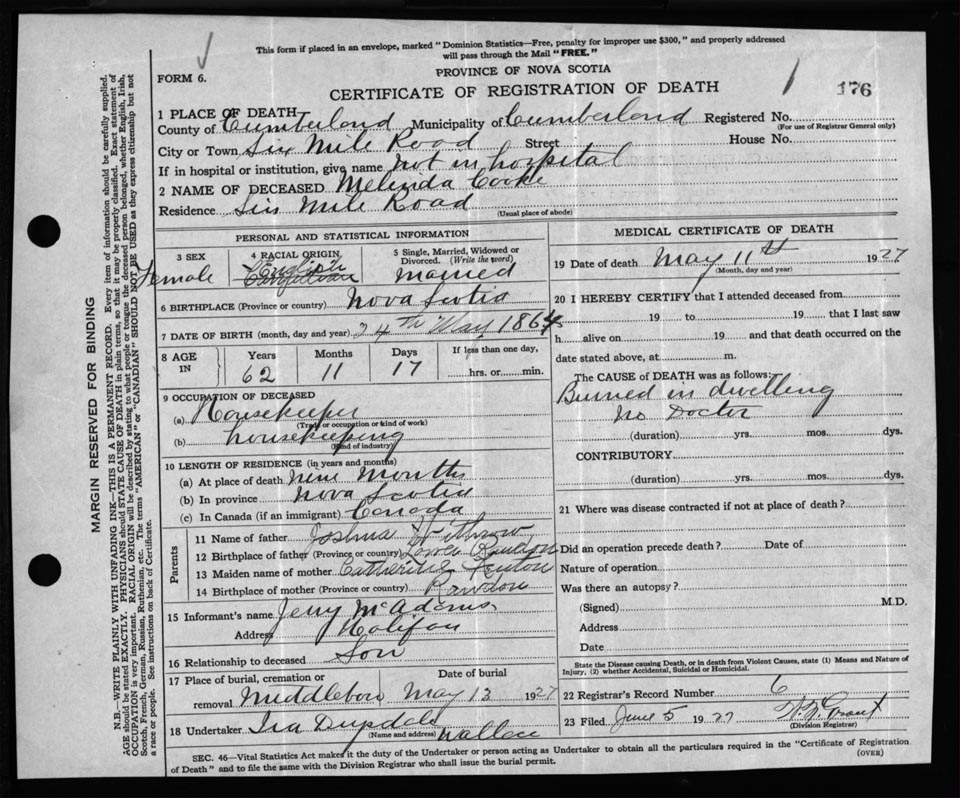 This form if placed in an envelope, marked "Dominion Statistics—Free, penalty for improper use $300," and properly addressed
will pass through the Mail "FREE."
FORM 6.
PROVINCE OF NOVA SCOTIA
CERTIFICATE OF REGISTRATION OF DEATH
176
1 PLACE OF DEATH
County of Cumberland Municipality of Cumberland Registered No.
(For use of Registrar General only)
City or Town Six Mile Road Street House No.
If in hospital or institution, give name not in hospital
2 NAME OF DECEASED Melinda Cooke
Residence Six Mile Road
(Usual place of abode)
PERSONAL AND STATISTICAL INFORMATION
3 SEX
Female
4 RACIAL ORIGIN
English
5 Single, Married, Widowed or Divorced. (Write the word)
married
6 BIRTHPLACE (Province or country) Nova Scotia
7 DATE OF BIRTH (month, day and year) 24th May 1864
8 AGE IN
Years Months Days If less than one day,
62 11 17 hrs. or min.
9 OCCUPATION OF DECEASED
(a) Housekeeper
(Trade or occupation or kind of work)
(b) housekeeping
(Kind of industry)
10 LENGTH OF RESIDENCE (in years and months)
(a) At place of death nine months
(b) In province Nova Scotia
(c) In Canada (if an immigrant) Canada
Parents
11 Name of father Joshua Withrow
12 Birthplace of father (Province or country)
13 Maiden name of mother Catherine
14 Birthplace of mother (Province or country) Rawdon
15 Informant's name Jerry McAdams
Address Halifax
16 Relationship to deceased Son
17 Place of burial, cremation or removal Date of burial
Middleboro May 13 1927
18 Undertaker Ira
(Name and address) Wallace
MEDICAL CERTIFICATE OF DEATH
19 Date of death May 11th 1927
(Month, day and year)
20 I HEREBY CERTIFY that I attended deceased from
19 to 19 that I last saw
h alive on 19 and that death occurred on the
date stated above, at m.
The CAUSE of DEATH was as follows:
Burned in dwelling
no Doctor
(duration) yrs. mos. dys.
CONTRIBUTORY
(duration) yrs. mos. dys.
21 Where was disease contracted if not at place of death?
Did an operation precede death? Date of
Nature of operation
Was there an autopsy?
(Signed) M.D.
Address
Date
State the Disease causing Death, or in death from Violent Causes, state (1) Means and Nature of
Injury, (2) whether Accidental, Suicidal or Homicidal.
22 Registrar's Record Number 6
23 Filed June 5 1927 Grant
(Division Registrar)
SEC. 46—Vital Statistics Act makes it the duty of the Undertaker or person acting as Undertaker to obtain all the particulars required in the "Certificate of Registration
of Death" and to file the same with the Division Registrar who shall issue the burial permit.
(OVER)
MARGIN RESERVED FOR BINDING
N.B.—WRITE PLAINLY WITH UNFADING INK—THIS IS A PERMANENT RECORD. Every item of information should be carefully supplied.
AGE should be stated EXACTLY. PHYSICIANS should STATE CAUSE OF DEATH in plain terms, so that it may be properly classified. Exact statement of
OCCUPATION is very important. RACIAL ORIGIN will be described by stating to what people or tongue the deceased person belonged, whether English, Irish,
Scotch, French, German, Russian, Ruthenian, etc. The terms "AMERICAN" or "CANADIAN" SHOULD NOT BE USED as they express citizenship but not
a race or people. See instructions on back of Certificate.